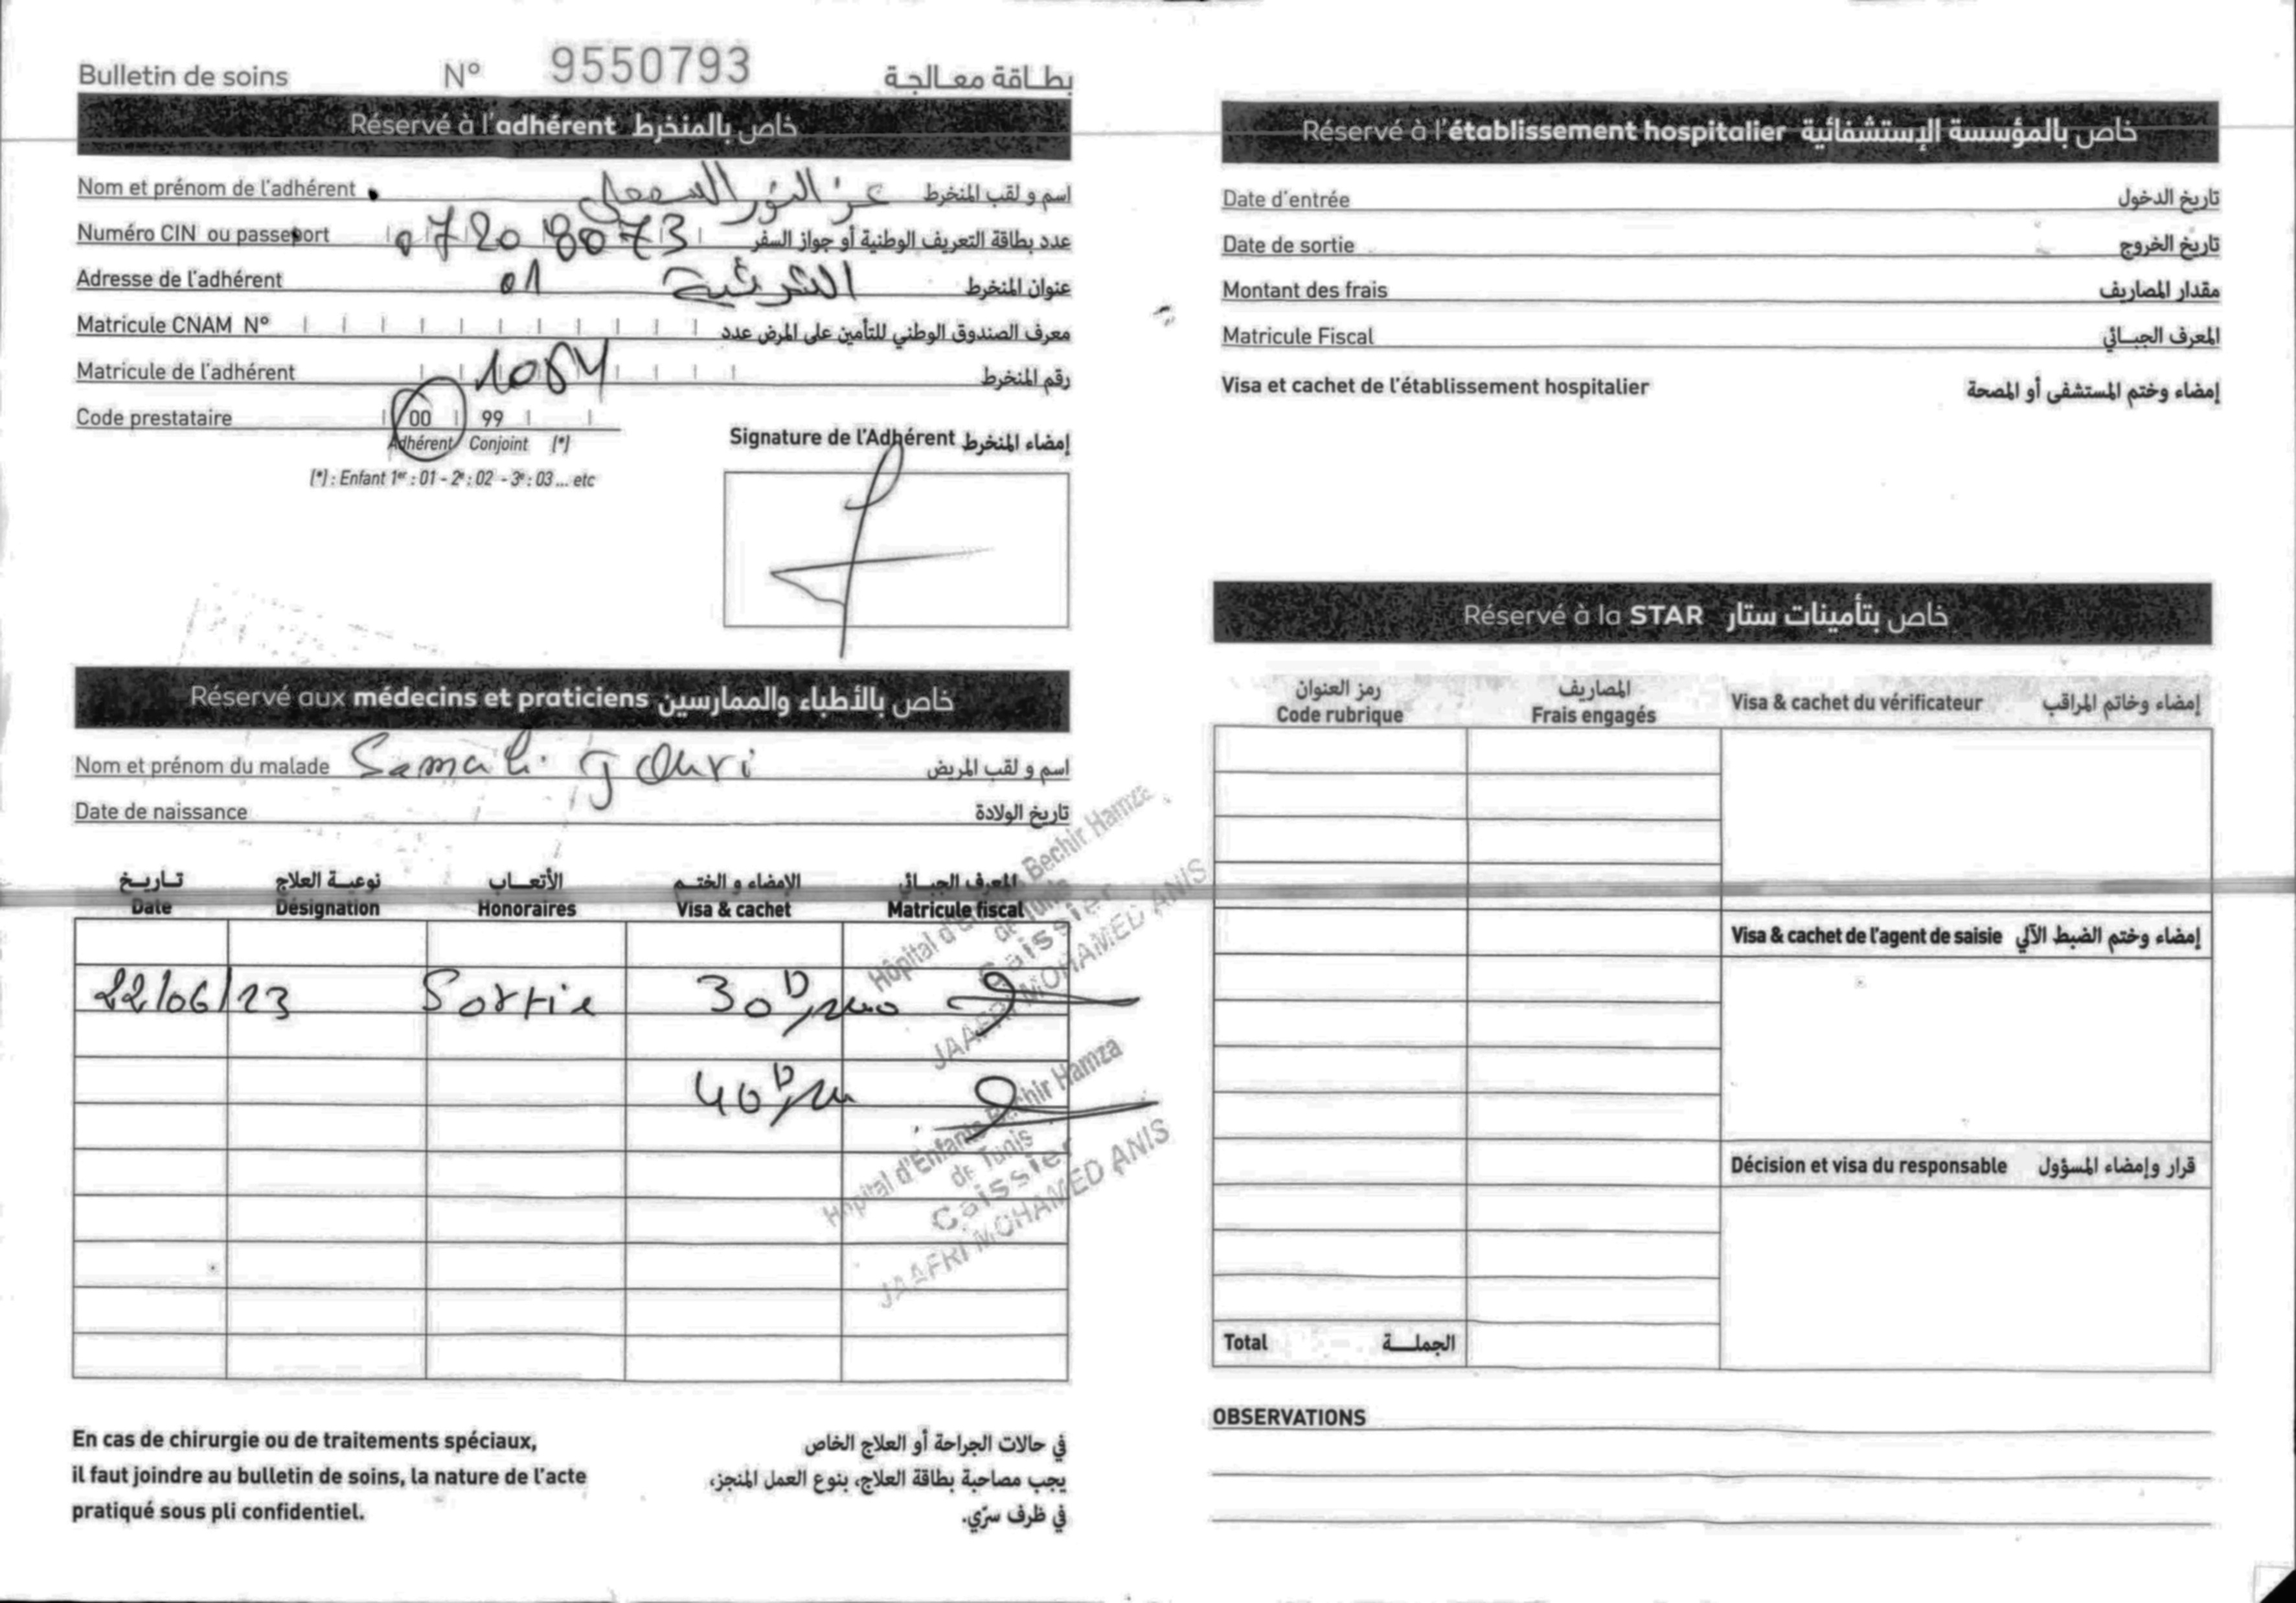 Bulletin de soins N° 9550793 بطاقة معالجة
Réservé à l'adhérent خاص بالمنخرط
Nom et prénom de l'adhérent عز النور السمعلي اسم و لقب المنخرط
Numéro CIN ou passeport 07208073 عدد بطاقة التعريف الوطنية أو جواز السفر
Adresse de l'adhérent 01 الشرقية عنوان المنخرط
Matricule CNAM N° معرف الصندوق الوطني للتأمين على المرض عدد
Matricule de l'adhérent 1054 رقم المنخرط
Code prestataire 00 99
Adhérent Conjoint (*)
(*) : Enfant 1er : 01 - 2e : 02 - 3e : 03 ... etc
Signature de l'Adhérent إمضاء المنخرط
Réservé aux médecins et praticiens خاص بالأطباء والممارسين
Nom et prénom du malade Samali اسم و لقب المريض
Date de naissance تاريخ الولادة
تاريخ نوعية العلاج الأتعاب الإمضاء و الختم المعرف الجبائي
Date Désignation Honoraires Visa & cachet Matricule fiscal
22/06/23 Sortie 30D
40D
Hôpital d'Enfants Bechir Hamza
de Tunis
Caissier
JAAFRI MOHAMED ANIS
Hôpital d'Enfants Bechir Hamza
de Tunis
Caissier
JAAFRI MOHAMED ANIS
En cas de chirurgie ou de traitements spéciaux,
il faut joindre au bulletin de soins, la nature de l'acte
pratiqué sous pli confidentiel.
في حالات الجراحة أو العلاج الخاص
يجب مصاحبة بطاقة العلاج، بنوع العمل المنجز،
في ظرف سرّي.
Réservé à l'établissement hospitalier خاص بالمؤسسة الإستشفائية
Date d'entrée تاريخ الدخول
Date de sortie تاريخ الخروج
Montant des frais مقدار المصاريف
Matricule Fiscal المعرف الجبائي
Visa et cachet de l'établissement hospitalier إمضاء وختم المستشفى أو المصحة
Réservé à la STAR خاص بتأمينات ستار
رمز العنوان المصاريف
Code rubrique Frais engagés Visa & cachet du vérificateur إمضاء وخاتم المراقب
Visa & cachet de l'agent de saisie إمضاء وختم الضبط الآلي
Décision et visa du responsable قرار وإمضاء المسؤول
Total الجملة
OBSERVATIONS